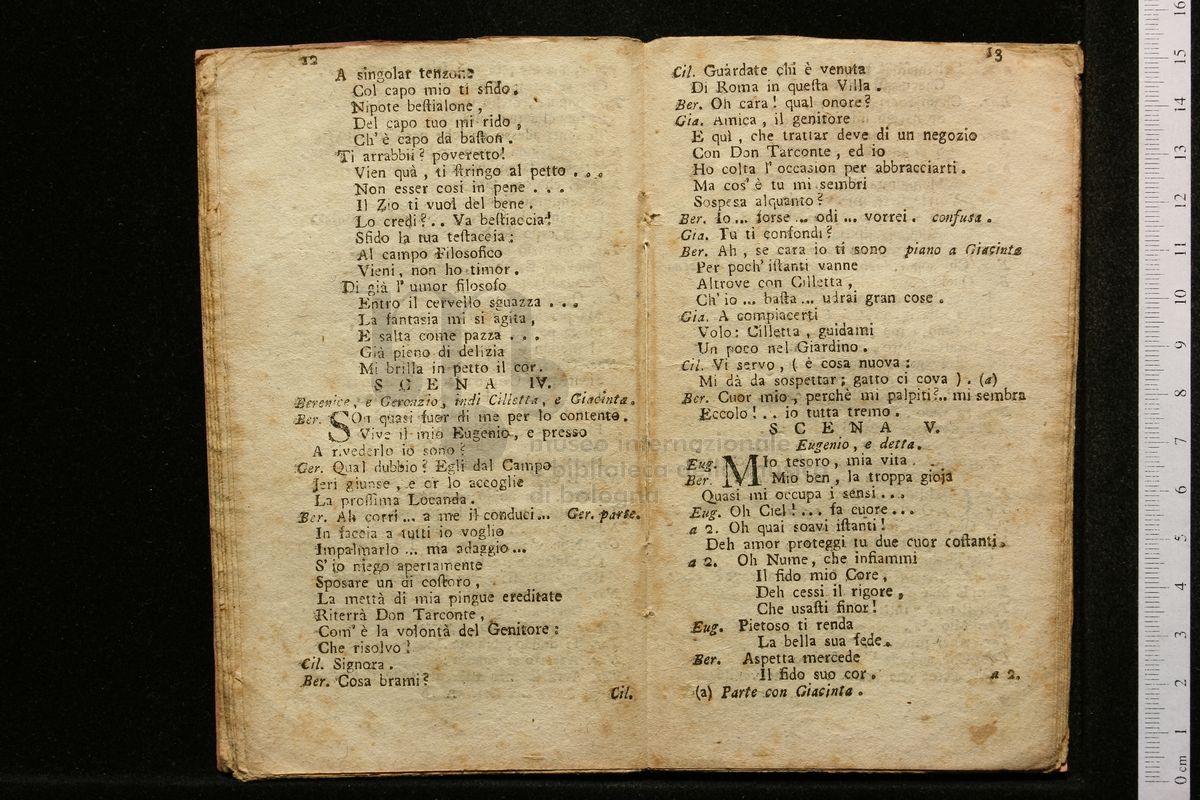 12
A singolar tenzone
Col capo mio ti sfido.
Nipote beſtialone,
Del capo tuo mi rido,
Ch' è capo da baſton.
Ti arrabbii? poveretto!
Vien quà, ti ſtringo al petto . . .
Non esser cosi in pene . . .
Il Zio ti vuol del bene.
Lo credi? . . Va beſtiaccia!
Sfido la tua teſtaccia:
Al campo Filosofico
Vieni, non ho timor.
Di già l' umor filosofo
Entro il cervello sguazza . . .
La fantasia mi si agita,
E salta come pazza . . .
Già pieno di delizia
Mi brilla in petto il cor.
S C E N A IV.
Berenice, e Gervazio, indi Cilletta, e Giacinta.
Ber. SOn quasi fuor di me per lo contento.
Vive il mio Eugenio, e presso
A rivederlo io sono?
Ger. Qual dubbio? Egli dal Campo
Jeri giunse, e or lo accoglie
La proſſima Locanda.
Ber. Ah corri ... a me il conduci ... Ger. parte.
In faccia a tutti io voglio
Impalmarlo ... ma adaggio ...
S' io niego apertamente
Sposare un di coſtoro,
La mettà di mia pingue ereditate
Riterrà Don Tarconte,
Com' è la volontà del Genitore:
Che risolvo!
Cil. Signora.
Ber. Cosa brami?
Cil.
13
Cil. Guardate chi è venuta
Di Roma in queſta Villa.
Ber. Oh cara! qual onore?
Gia. Amica, il genitore
E quì, che trattar deve di un negozio
Con Don Tarconte, ed io
Ho colta l' occasion per abbracciarti.
Ma cos' è tu mi sembri
Sospesa alquanto?
Ber. Io ... forse ... odi ... vorrei. confusa.
Gia. Tu ti confondi?
Ber. Ah, se cara io ti sono piano a Giacinta
Per poch' iſtanti vanne
Altrove con Cilletta,
Ch' io ... baſta ... udrai gran cose.
Gia. A compiacerti
Volo: Cilletta, guidami
Un poco nel Giardino.
Cil. Vi servo, ( è cosa nuova:
Mi dà da sospettar; gatto ci cova ). (a)
Ber. Cuor mio, perchè mi palpiti?.. mi sembra
Eccolo! . . io tutta tremo.
S C E N A V.
Eugenio, e detta.
Eug. MIo tesoro, mia vita.
Ber. Mio ben, la troppa gioja
Quasi mi occupa i sensi . . .
Eug. Oh Ciel! . . . fa cuore . . .
a 2. Oh quai soavi iſtanti!
Deh amor proteggi tu due cuor coſtanti.
a 2. Oh Nume, che infiammi
Il fido mio Core,
Deh cessi il rigore,
Che usaſti finor!
Eug. Pietoso ti renda
La bella sua fede.
Ber. Aspetta mercede
Il fido suo cor. a 2.
(a) Parte con Giacinta.
museo internazionale
biblioteca della musica
di bologna
0 cm 1 2 3 4 5 6 7 8 9 10 11 12 13 14 15 16